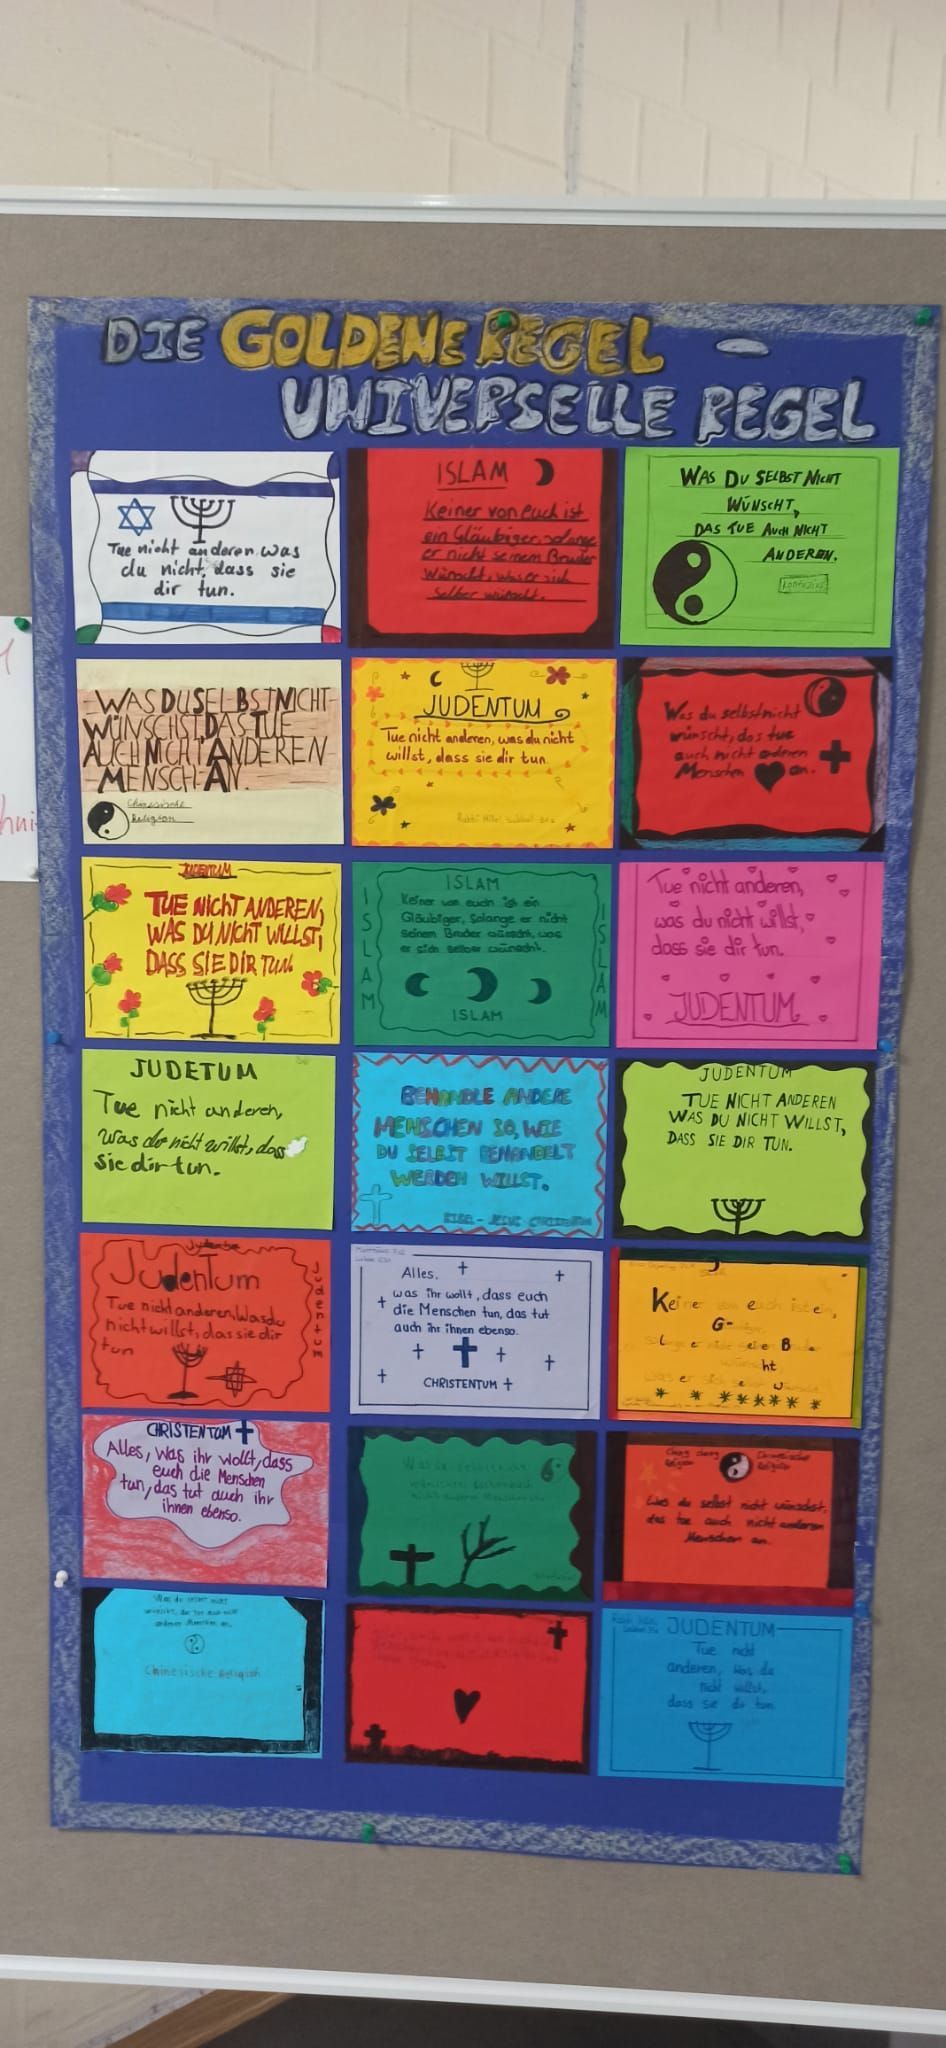 DIE GOLDENE REGEL -
UNIVERSELLE REGEL
Tue nicht anderen was
du nicht, dass sie
dir tun.
ISLAM
Keiner von euch ist
ein Gläubiger, solange
er nicht seinem Bruder
wünscht, was er sich
selber wünscht.
WAS DU SELBST NICHT
WÜNSCHT,
DAS TUE AUCH NICHT
ANDEREN.
WAS DU SELBST NICHT
WÜNSCHST DAS TUE
AUCH NICHT ANDEREN
MENSCH AN.
Chinesische
Religion
JUDENTUM
Tue nicht anderen, was du nicht
willst, dass sie dir tun.
Was du selbst nicht
wünscht, das tue
auch nicht anderen
Menschen an.
JUDENTUM
TUE NICHT ANDEREN,
WAS DU NICHT WILLST,
DASS SIE DIR TUN.
ISLAM
ISLAM
ISLAM
Keiner von euch ist ein
Gläubiger, solange er nicht
seinem Bruder wünscht, was
er sich selber wünscht.
ISLAM
Tue nicht anderen,
was du nicht willst,
dass sie dir tun.
JUDENTUM
JUDETUM
Tue nicht anderen,
was du nicht willst, dass
sie dir tun.
BEHANDLE ANDERE
MENSCHEN SO, WIE
DU SELBST BEHANDELT
WERDEN WILLST.
BIBEL - JESUS CHRISTENTUM
JUDENTUM
TUE NICHT ANDEREN
WAS DU NICHT WILLST,
DASS SIE DIR TUN.
JudenTum
Tue nicht anderen, Was du
nicht willst, dass sie dir
tun
Alles,
was ihr wollt, dass euch
die Menschen tun, das tut
auch ihr ihnen ebenso.
CHRISTENTUM
Keiner von euch ist ein,
CHRISTENTUM
Alles, was ihr wollt, dass
euch die Menschen
tun, das tut auch ihr
ihnen ebenso.
Chinesische
Religion
Was du selbst nicht wünschst,
das tue auch nicht anderen
Menschen an.
Was du selbst nicht
wünscht, das tue auch nicht
anderen Menschen an.
Chinesische Religion
JUDENTUM
Tue nicht
anderen, was du
nicht willst,
dass sie dir tun.